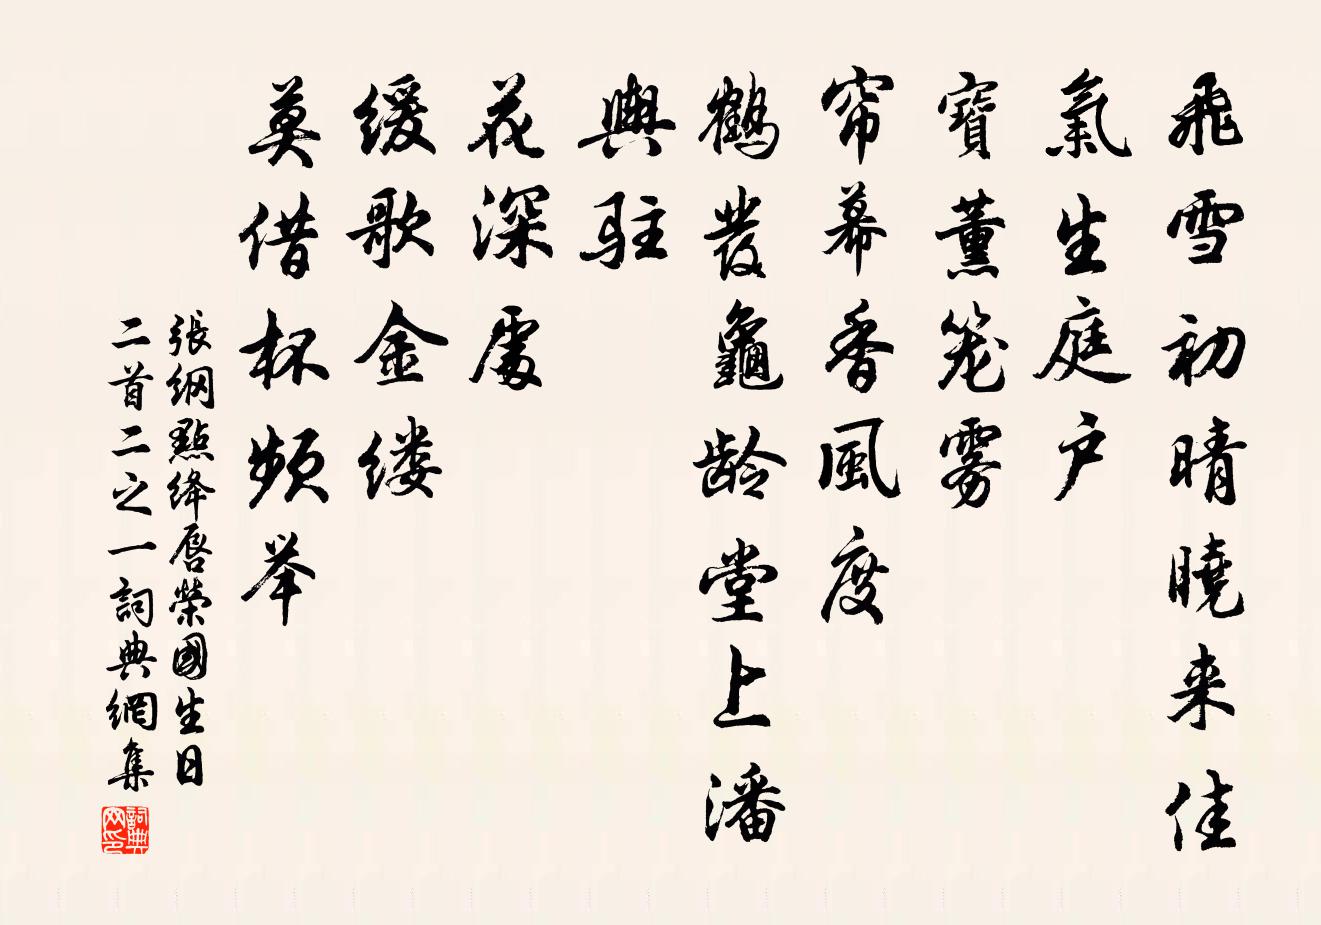 飛雪初晴曉来佳
氣生庭户
寶薰笼雾
帘幕香風度
鶴发龜龄堂上潘
輿駐
花深處
缓歌金缕
莫借杯频举
張纲點绛唇榮國生日
二首二之一詞典網集
詞典网印